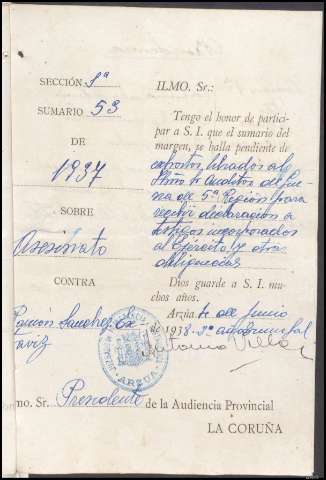 SECCIÓN 1ª
SUMARIO 53
DE
1937
SOBRE
Asesinato
CONTRA
Ramón Sanchez
ILMO. Sr.:
Tengo el honor de partici-
par a S. I. que el sumario del
margen, se halla pendiente de
exhortos librados a los
Iltmos Sr Auditor de Gue-
rra de 5ª Región para
recibir declaración a
testigos incorporados
al Ejército, y otras
diligencias
Dios guarde a S. I. mu-
chos años.
Arzúa 4 de Junio
de 1938-2º año triunfal
Antonio
ARZUA
lmo. Sr. Presidente de la Audiencia Provincial
LA CORUÑA